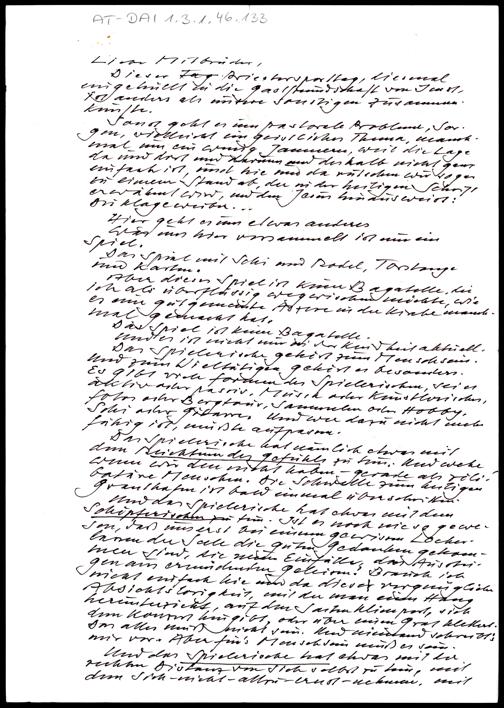 AT-DAI 1.3.1.46.133
Liebe Mitbrüder,
Dieser Tag, Priestersporttag, diesmal
eingehüllt in die Gastfreundschaft von Innst
ist anders als unsere sonstigen Zusammen-
künfte.
Sonst geht es um pastorale Probleme, Sor-
gen, vielleicht ein geistliches Thema, manch-
mal um ein wenig Jammern, weil die Lage
da und dort und darum und deshalb nicht ganz
einfach ist, und hie und da rutschen wir sogar
zu einem Stand ab, der in der heiligen Schrift
erwähnt wird, und den Jesus hinausweist:
Die Klageweiber...
Hier geht es um etwas anderes
Was uns hier versammelt ist nur ein
Spiel.
Das Spiel mit Schi und Rodel, Torstange
und Karten.
Aber dieses Spiel ist keine Bagatelle, die
ich als überflüssig wegwischen möchte, wie
es eine gutgemeinte Askese in der Kirche manch-
mal gemacht hat.
Das Spiel ist keine Bagatelle.
Und es ist nicht nur in der Kindheit aktuell.
Das Spielerische gehört zum Menschsein.
Und zum Vielfältigen gehört es besonders.
Es gibt viele Formen des Spielerischen, sei es
aktiv oder passiv, Musisch oder Künstlerisch,
Foto oder Bergtour, Sammeln oder Hobby,
Schi oder Gitarre. Und wer dazu nicht mehr
fähig ist, müßte aufpassen.
Das Spielerische hat nämlich etwas mit
dem Reichtum des Gefühls zu tun. Und wehe
wenn wir den nicht haben - gerade als zöli-
batäre Menschen. Die Schwelle zum
Grantham ist bald einmal überschritten.
Und das Spielerische hat etwas mit dem
Schöpferischen zu tun. Ist es noch nie so gewe-
sen, daß uns erst bei einem gewissen Locker-
lassen der Seele die guten Gedanken gekom-
men sind, die neuen Einfälle, das
Brauch ich
nicht einfach hie und da dieses vergnügliche
Absichtslosigkeit, mit der man einen Hang
herunterzieht, auf den Saiten klimpert, sich
dem Konzert hingibt, oder über einen Grat klettert.
Das alles muß nicht sein. Und niemand schreibt's
mir vor. Aber fürs Menschsein muß es sein.
Und das Spielerische hat etwas mit der
rechten Distanz von sich selbst zu tun, mit
dem Sich-nicht-allzu-ernst-nehmen, mit